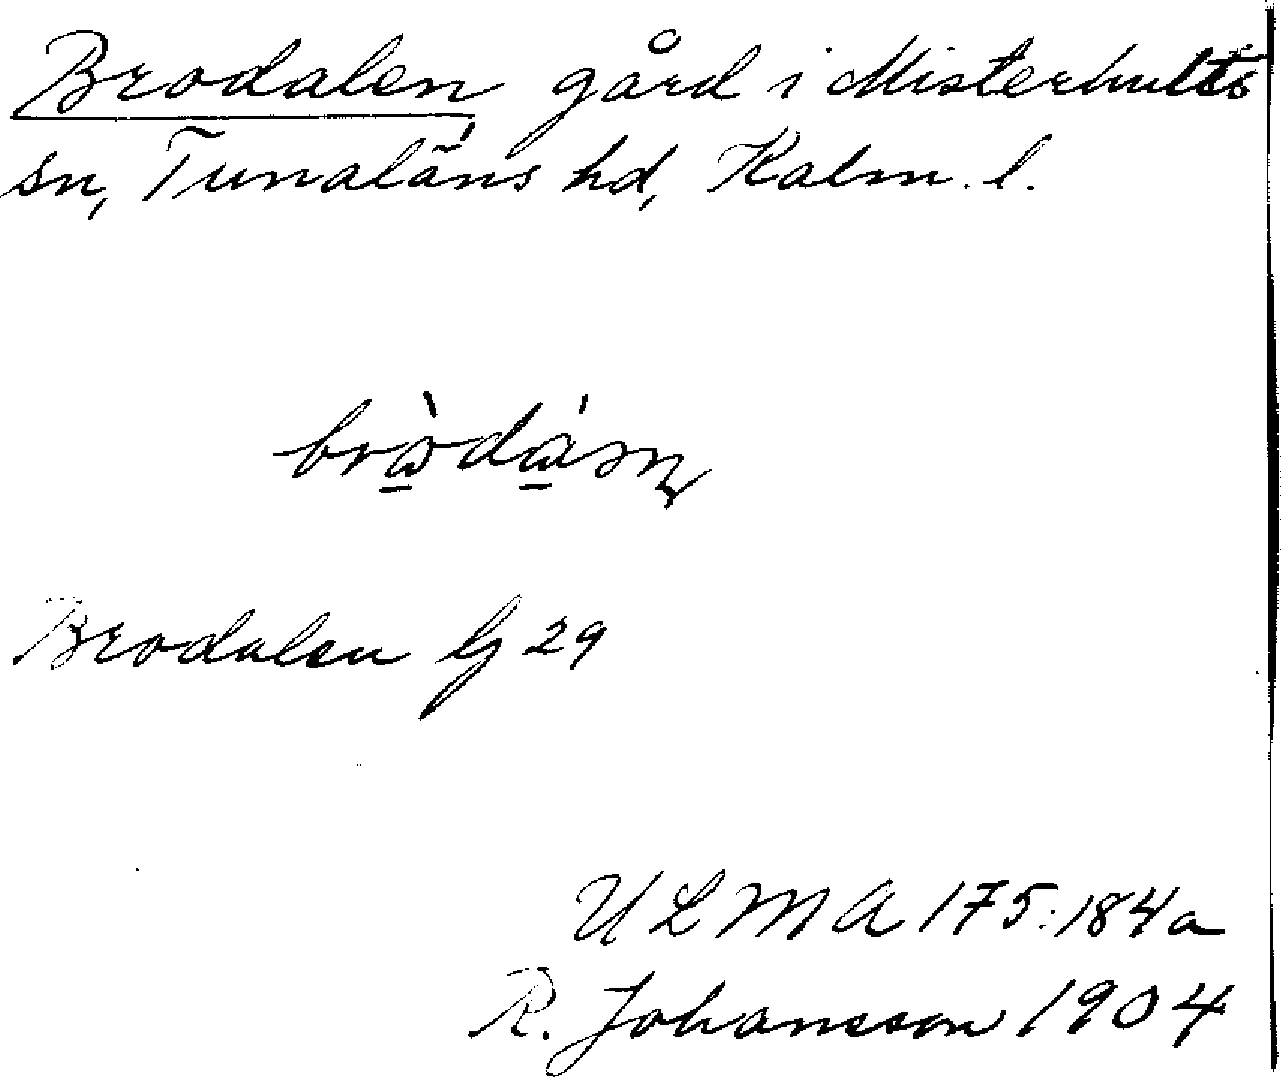 Brodalen gård i Misterhults
sn, Tunaläns hd, Kalm. l.
Brodalen lj 29
ULMA 175:184a
R. Johansson 1904